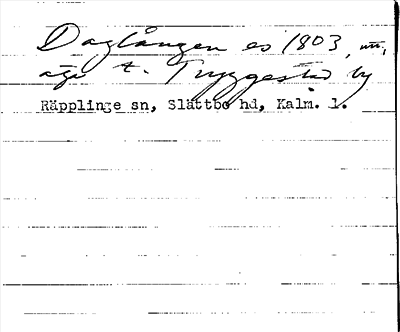 Daglången es 1803, utt.
äga t. Tryggestad by
Räpplinge sn, Slättbo hd, Kalm. l.